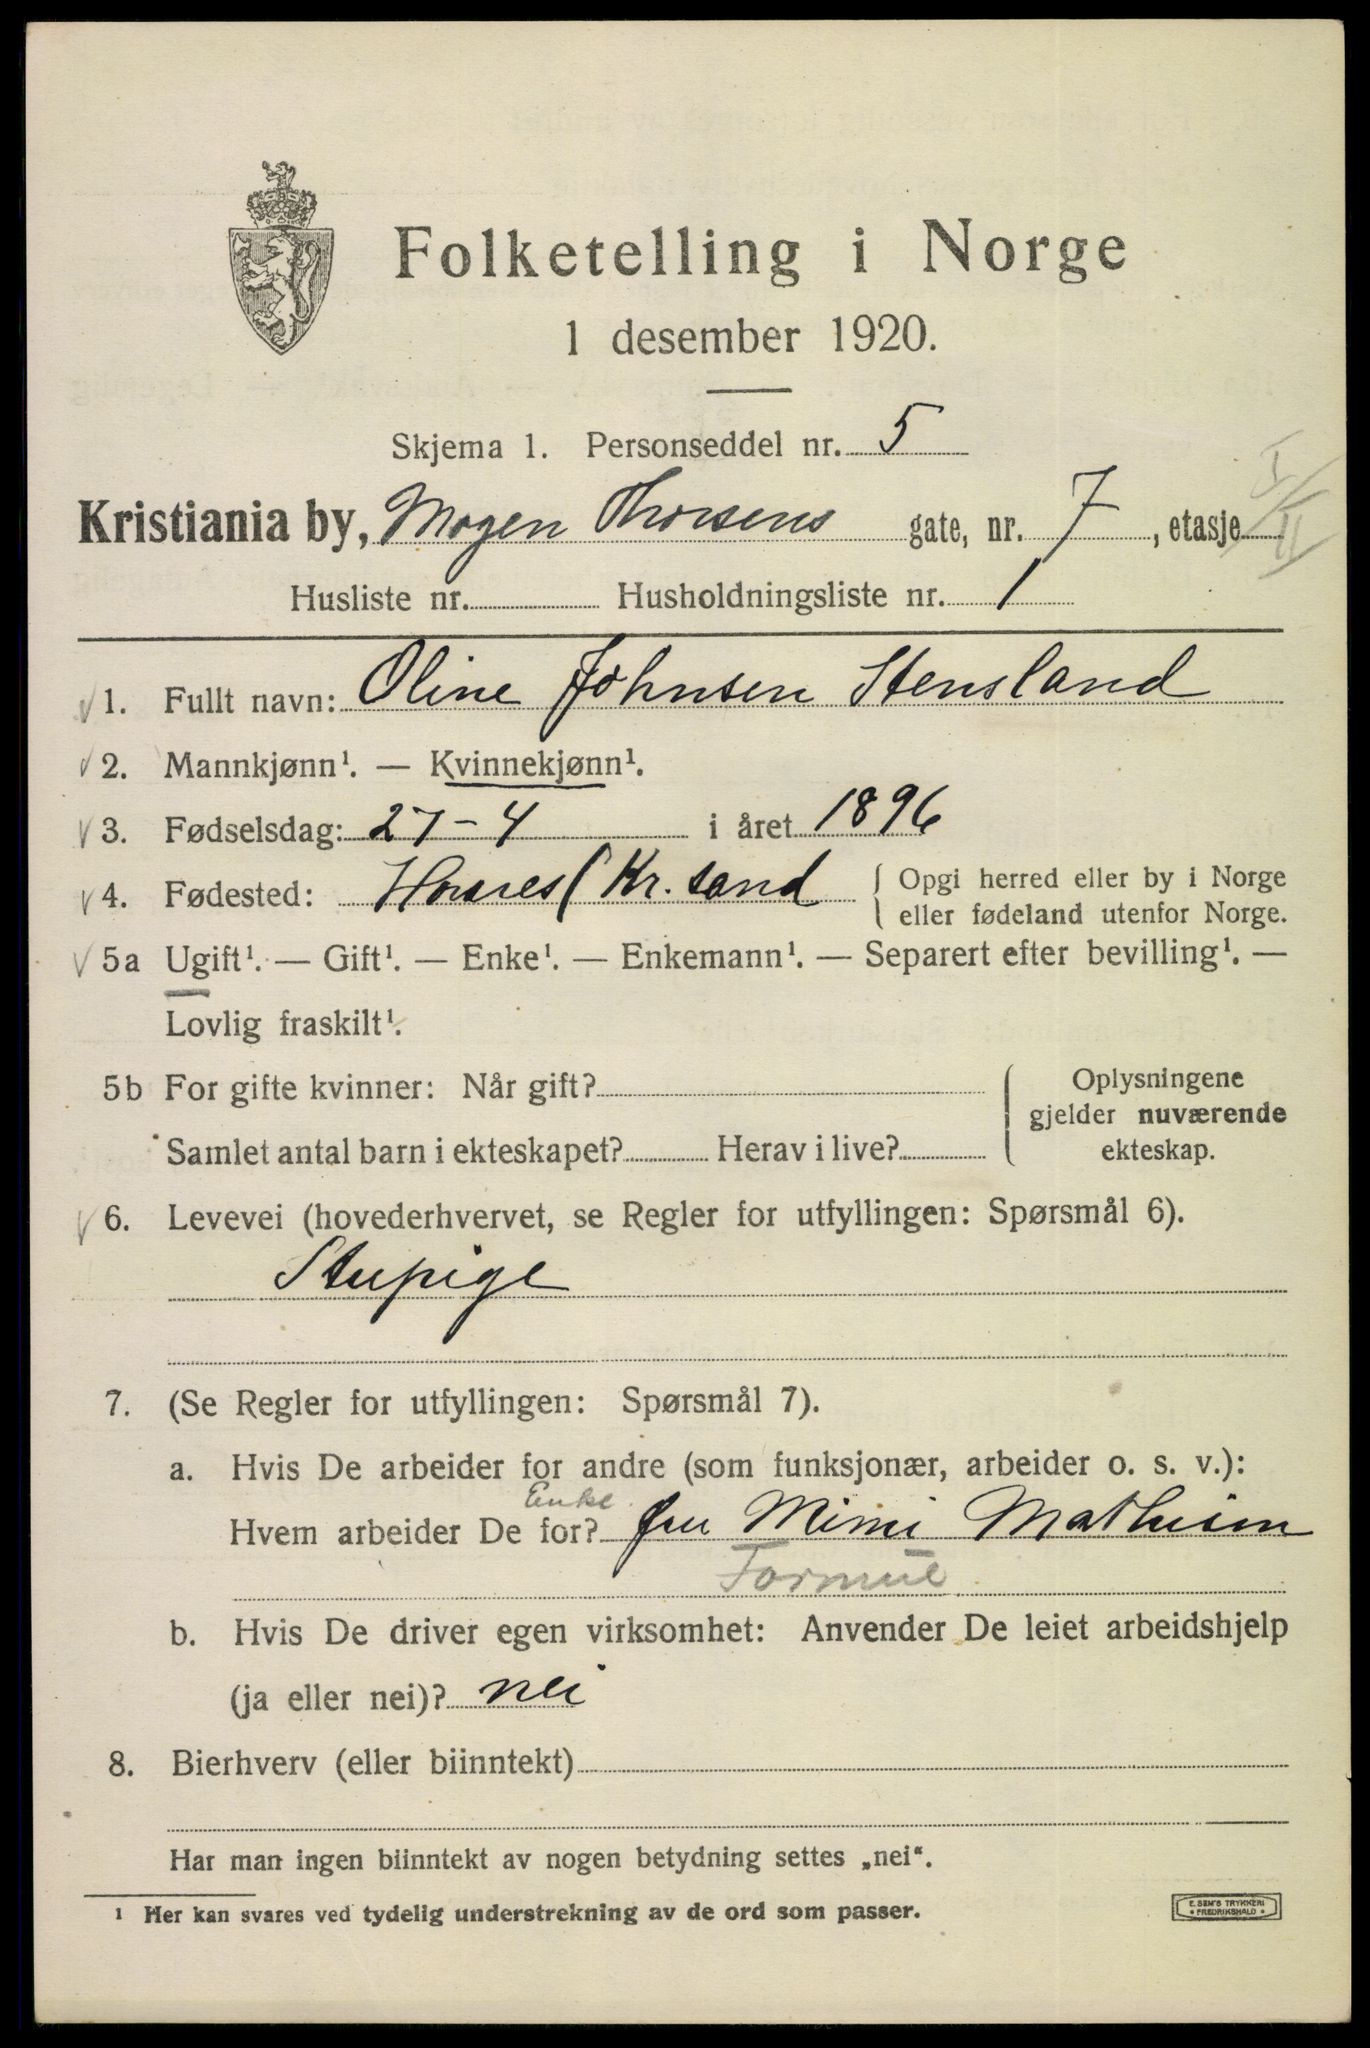 Folketelling i Norge
1 desember 1920.
Skjema 1. Personseddel nr. 5
Kristiania by, Mogen Thorsens gate, nr. 7, etasje I/II
Husliste nr. Husholdningsliste nr. 1
1. Fullt navn: Oline Johnsen Stensland
2. Mannkjønn¹. — Kvinnekjønn¹.
3. Fødselsdag: 27-4 i året 1896
4. Fødested: (Kr. sand Opgi herred eller by i Norge
eller fødeland utenfor Norge.
5a Ugift¹. — Gift¹. — Enke¹. — Enkemann¹. — Separert efter bevilling¹. —
Lovlig fraskilt¹.
5b For gifte kvinner: Når gift?
Samlet antal barn i ekteskapet? Herav i live?
Oplysningene
gjelder nuværende
ekteskap.
6. Levevei (hovederhvervet, se Regler for utfyllingen: Spørsmål 6).
Stupige
7. (Se Regler for utfyllingen: Spørsmål 7).
a. Hvis De arbeider for andre (som funksjonær, arbeider o. s. v.):
Enke
Hvem arbeider De for? fru Mimi Mathisen
Formue
b. Hvis De driver egen virksomhet: Anvender De leiet arbeidshjelp
(ja eller nei)? nei
8. Bierhverv (eller biinntekt)
Har man ingen biinntekt av nogen betydning settes „nei“.
¹ Her kan svares ved tydelig understrekning av de ord som passer.
E. SEM'S TRYKKERI
• FREDRIKSHALD •